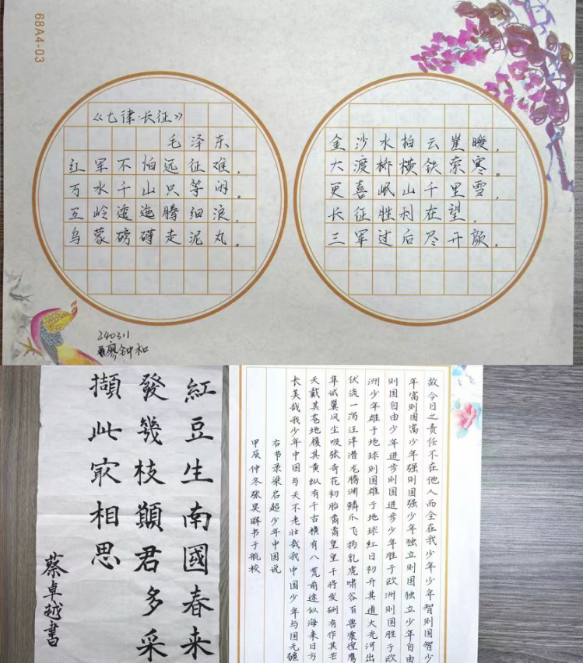 68A4-03
《七律·长征》
毛泽东
红军不怕远征难，
万水千山只等闲。
五岭逶迤腾细浪，
乌蒙磅礴走泥丸。
240311
廖钟和
金沙水拍云崖暖，
大渡桥横铁索寒。
更喜岷山千里雪，
长征胜利在望，
三军过后尽开颜。
紅豆生南國春来
發幾枝願君多采
擷此㝡相思
蔡卓越書
故今日之责任不在他人而全在我少年少年智则国智少
年富则国富少年强则国强少年独立则国独立少年自由
则国自由少年进步则国进步少年胜于欧洲则国胜于欧
洲少年雄于地球则国雄于地球红日初升其道大光河出
伏流一泻汪洋潜龙腾渊鳞爪飞扬乳虎啸谷百兽震惶鹰
隼试翼风尘吸张奇花初胎矞矞皇皇干将发硎有作其芒
天戴其苍地履其黄纵有千古横有八荒前途似海来日方
长美哉我少年中国与天不老壮哉我中国少年与国无疆
右节录梁启超少年中国说
甲辰仲冬张昊书于航校